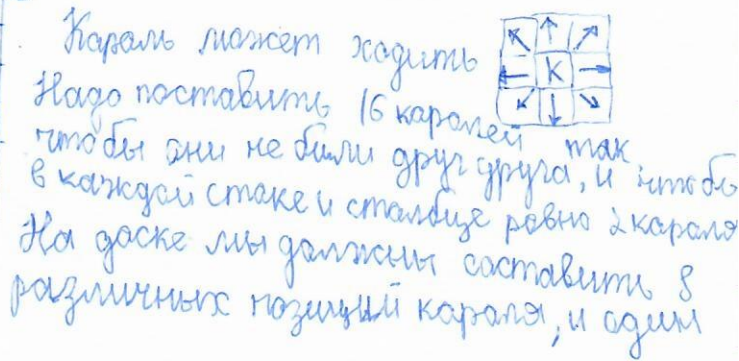 Кароль может ходить
К
Надо поставить 16 каролей так,
чтобы они не били друг друга, и чтобы
в каждой стоке и столбце ровно 2 короля
На доске мы должны составить 8
различных позиций кароля, и один